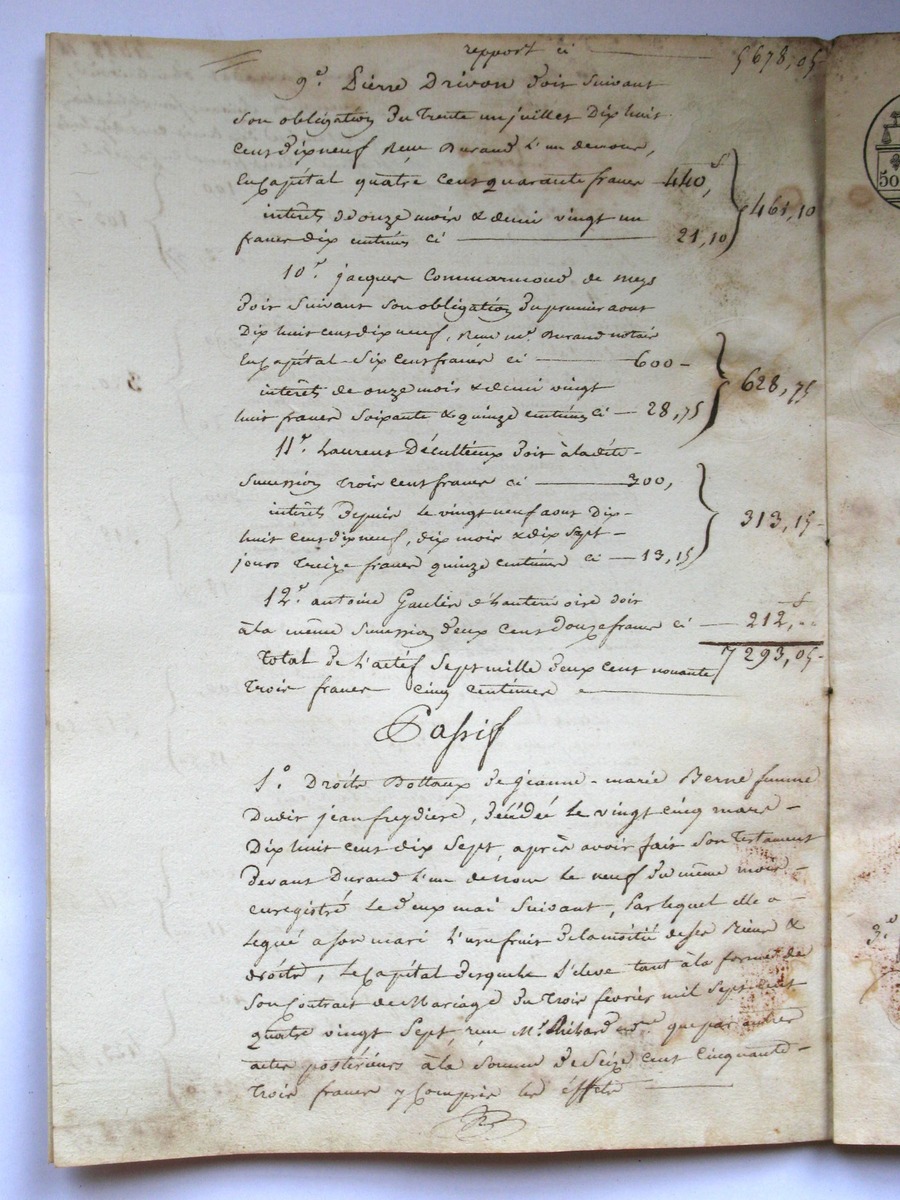 report ci 5678,05
9° Pierre Drivon doit suivant
son obligation du trente un juillet dix huit
cent dix neuf reçue Durand l'un de nous,
en capital quatre cent quarante francs 440,f
intérêts de onze mois & demi vingt un
francs dix centimes ci 21,10
461,10
10° jacques Commarmond de meys
doit suivant son obligation du premier aout
dix huit cent dix neuf, reçue me. Durand notaire
en capital six cent francs ci 600 -
intérêts de onze mois & demi vingt
huit francs soixante & quinze centimes ci 28,75
628,75
11° Laurent Décultieux doit à la dite
succession trois cent francs ci 300,
intérêts depuis le vingt neuf aout dix
huit cent dix neuf, dix mois & dix sept
jours treize francs quinze centimes ci 13,15
313,15
12° antoine Gaulin d'hauterivoire doit
à la même succession deux cent douze francs ci 212,f
Total de l'actif sept mille deux cent nonante 7293,05
trois francs cinq centimes
Passif
1° Droits Dottaux de jeanne-marie Berne femme
dudit jean freydiere, décédée le vingt cinq mars
dix huit cent dix sept, après avoir fait son testament
devant Durand l'un de nous le neuf du même mois
enregistré le deux mai suivant, par lequel elle a
legué a son mari l'usufruit de la moitié de ses Biens &
droits, le capital desquels s'eleve tant à la forme de
son Contrat de Mariage du trois fevrier mil sept cent
quatre vingt sept, reçu Me. que par autres
actes postérieurs à la somme de seize cent cinquante
trois francs y compris les effets
3.°
50